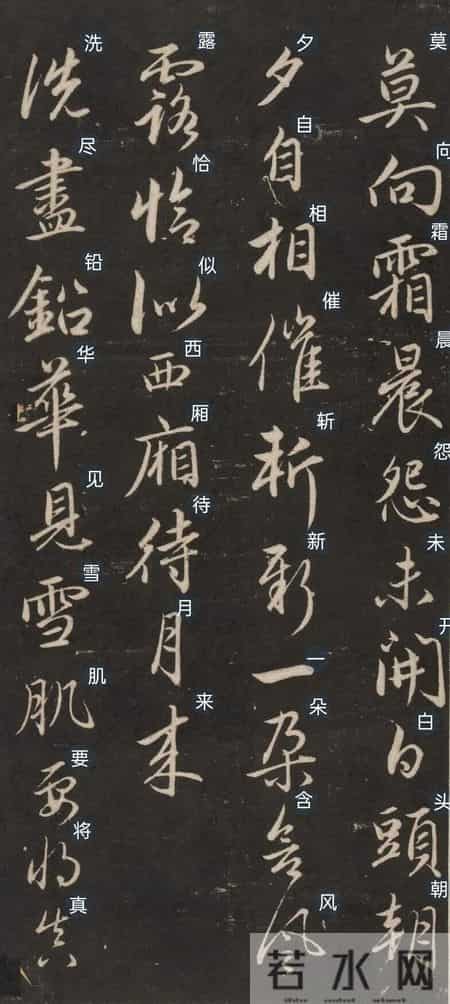 莫向霜晨怨未開白頭朝
莫向霜晨怨未开白头朝
夕自相催斬新一朶含風
夕自相催斩新一朵含风
露恰似西廂待月來
露恰似西厢待月来
洗盡鉛華見雪肌要將真
洗尽铅华见雪肌要将真
若水网